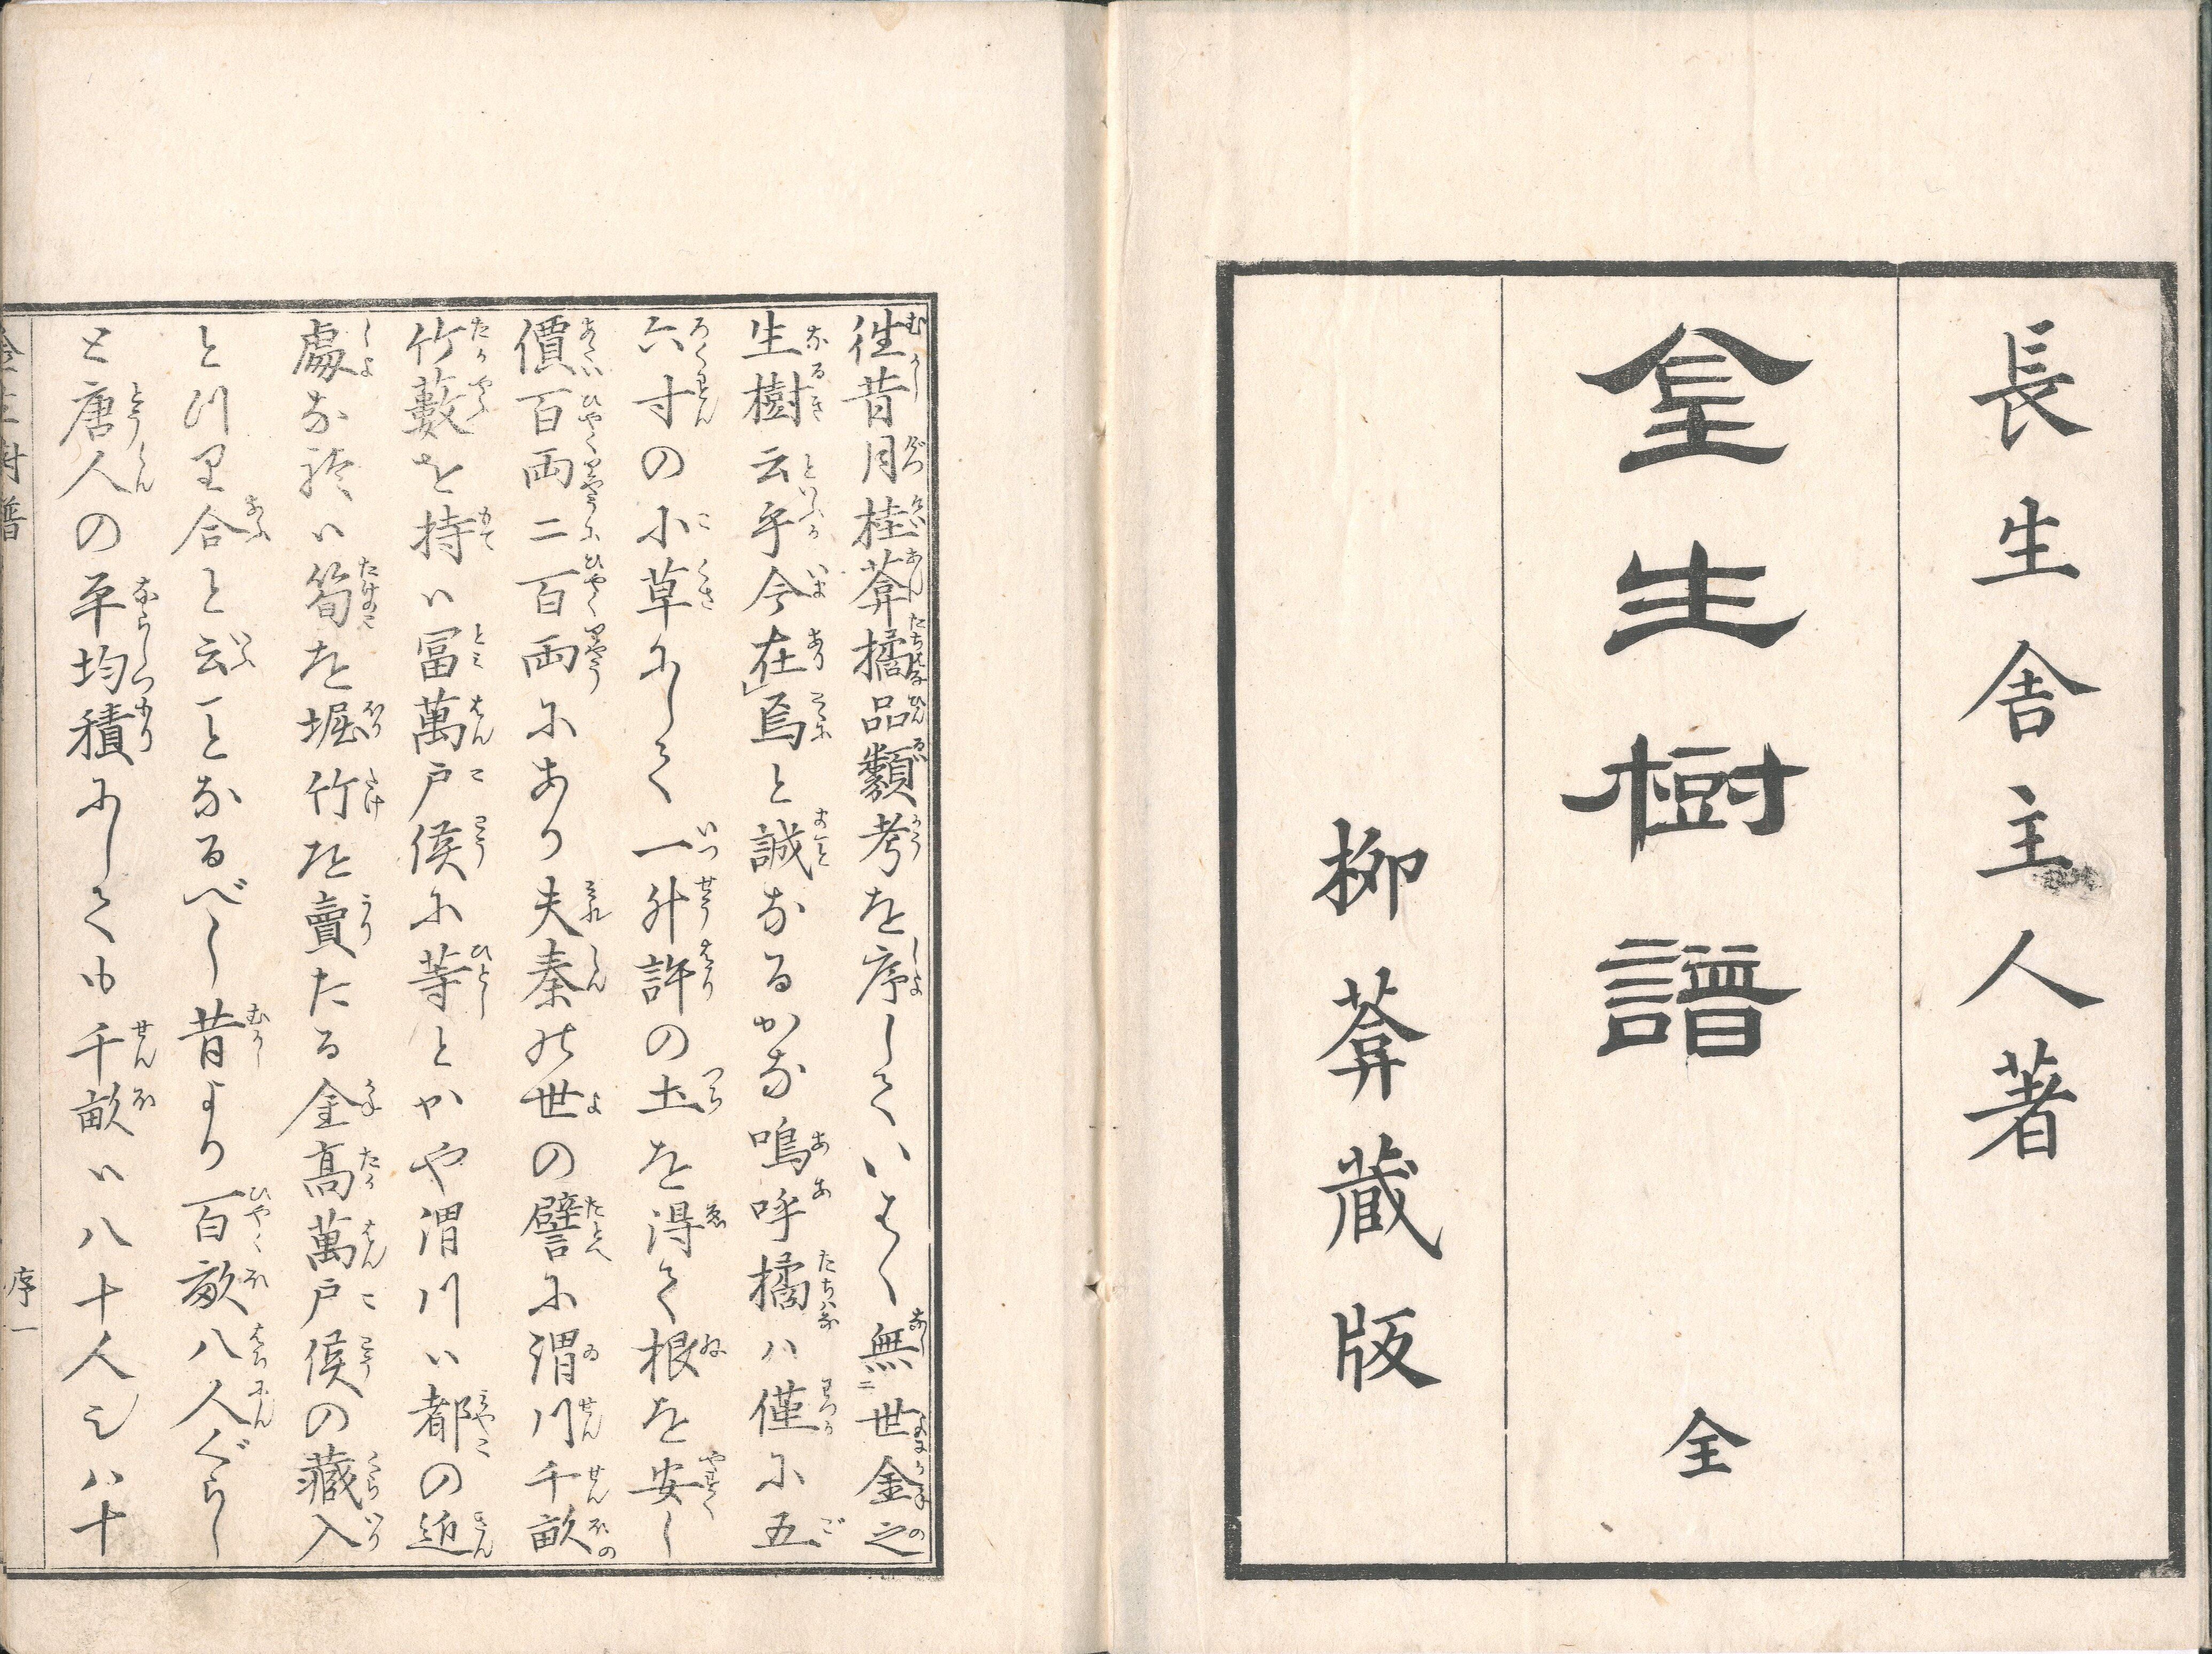 長生舎主人著
金生樹譜 全
柳葊蔵版
徃昔月桂葊橘品類考を序していはく無世金之
生樹云乎今在焉と誠なるかな嗚呼橘ハ僅に五
六寸の小草にして一升許の土を得て根を安し
價百両二百両にあり夫秦の世の譬に渭川千畝
竹藪を持ハ冨萬戸侯に等とかや渭川ハ都の近
處な於ハ筍を堀竹を賣たる金高萬戸侯の蔵入
とつり合と云ことなるべし昔より百畝八人ぐらし
と唐人の平均積にして千畝ハ八十人也八十
金生樹譜 序一